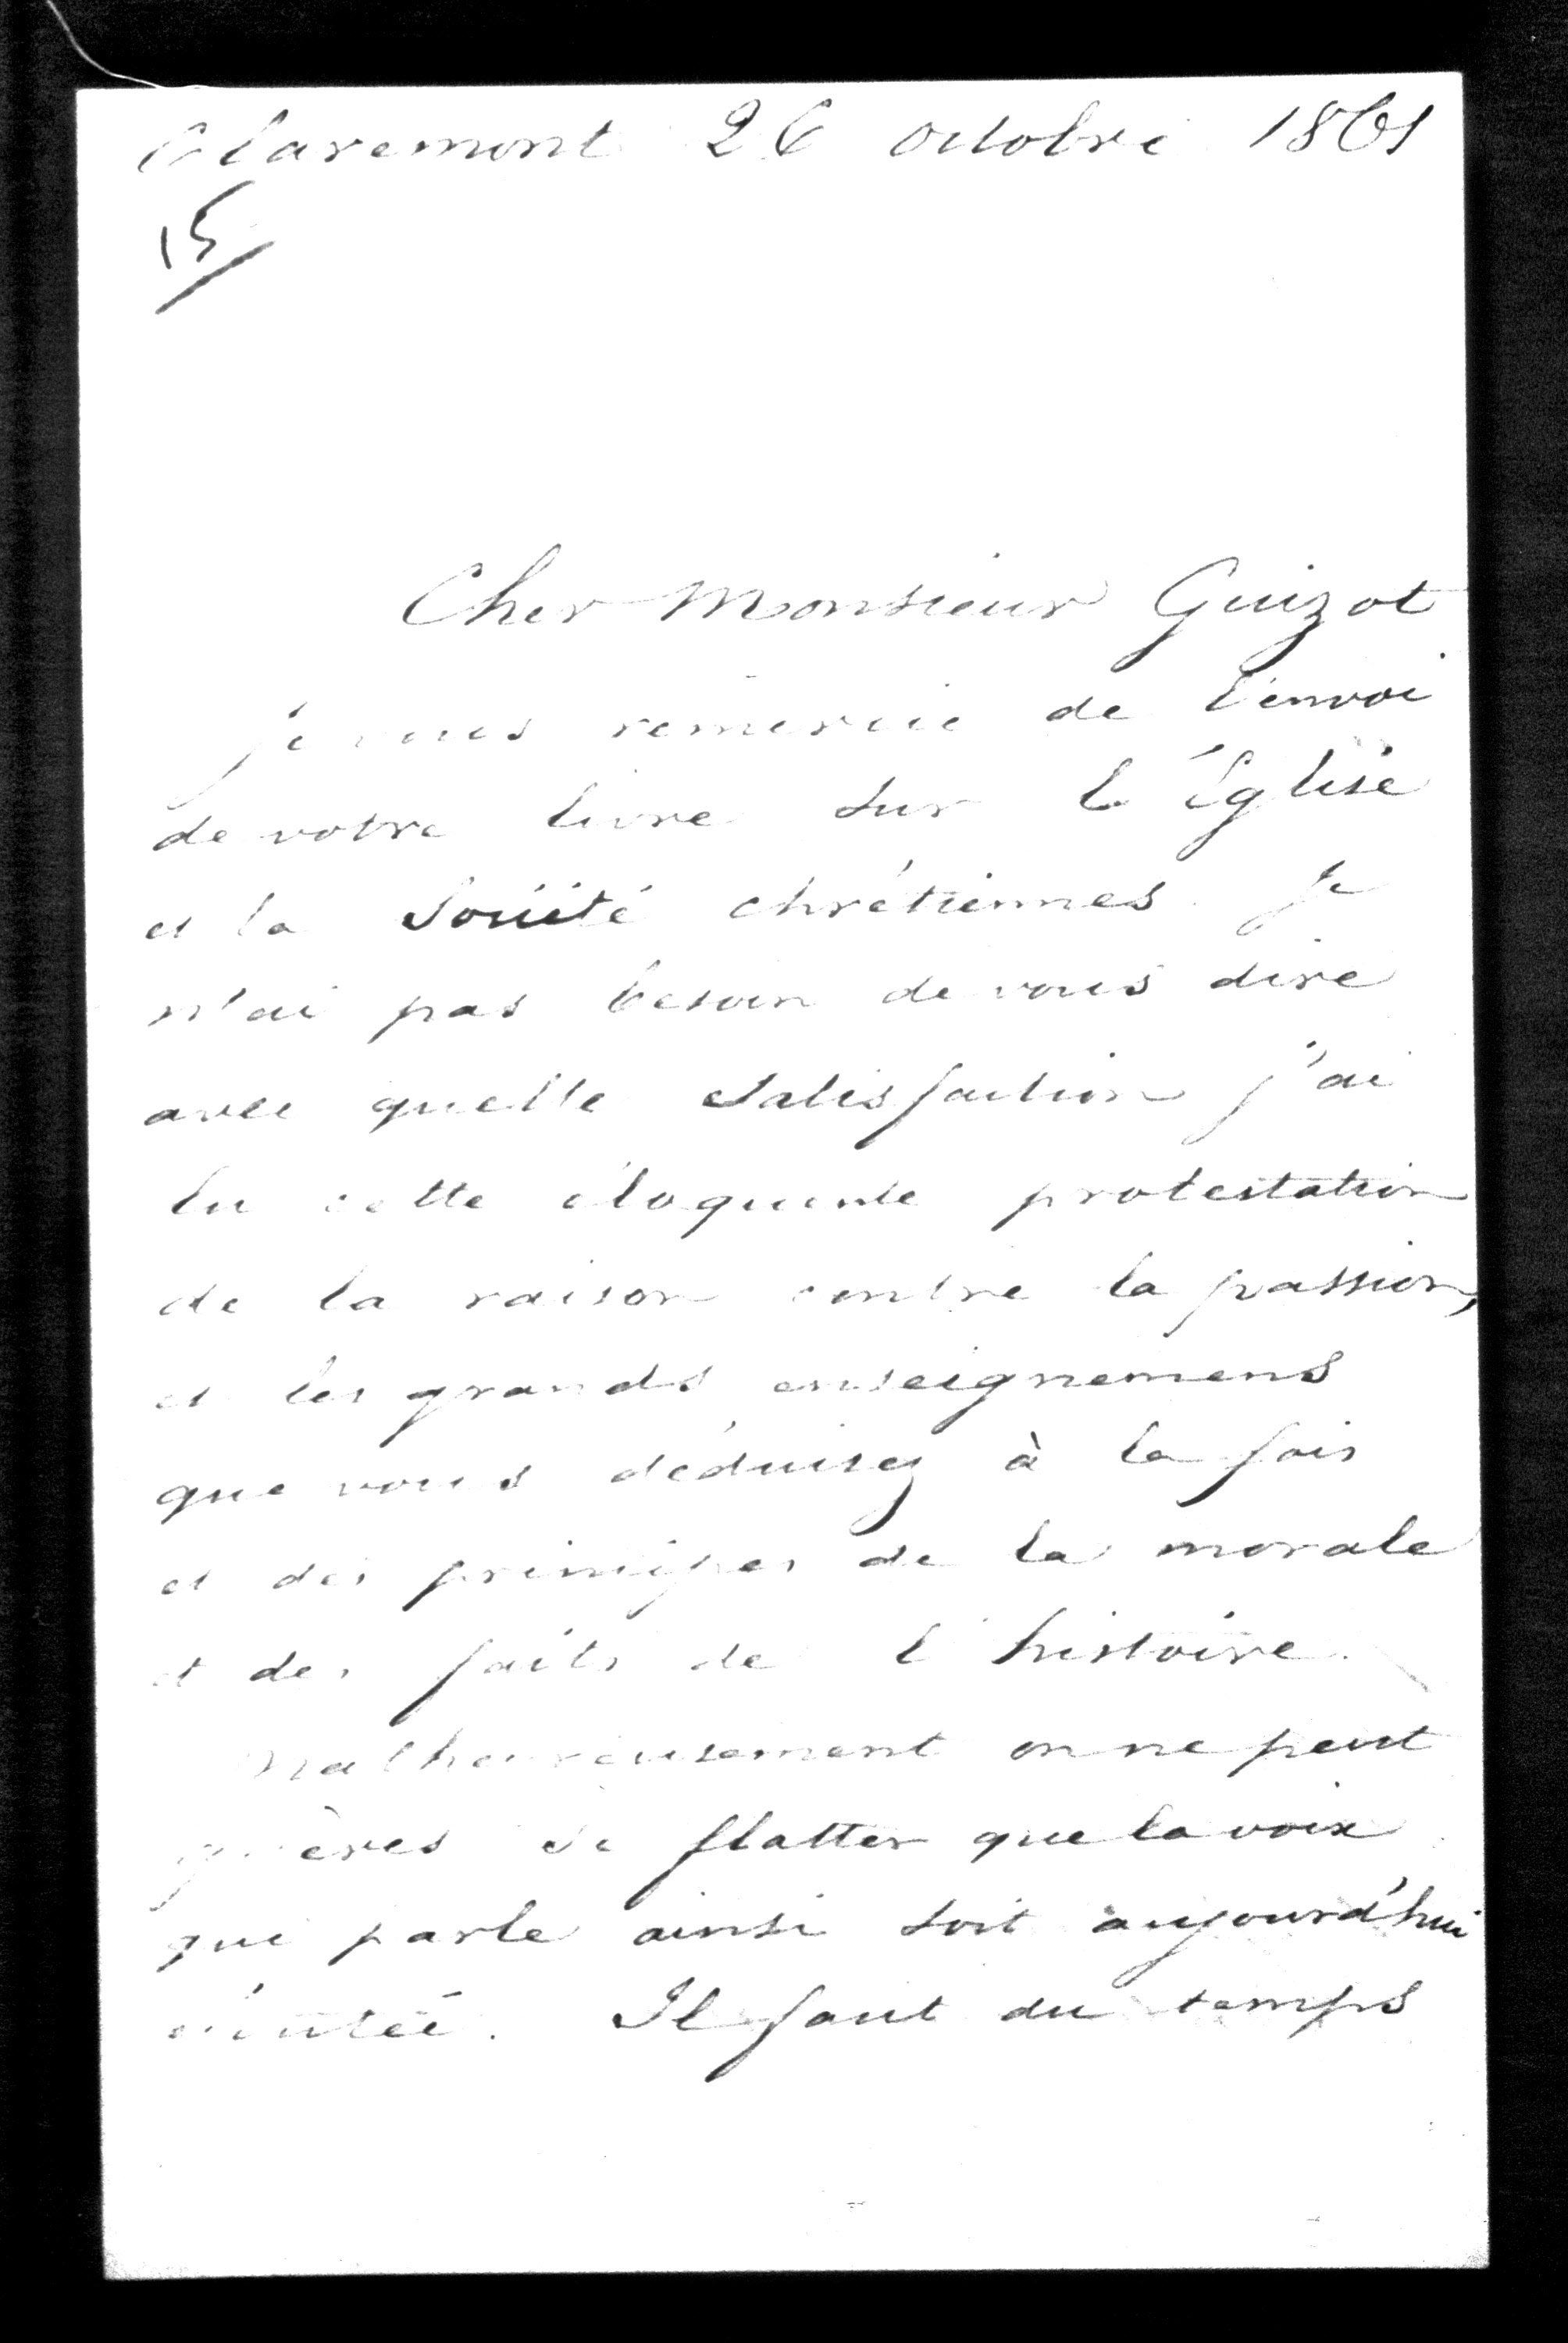 Claremont 26 octobre 1861
15
Cher Monsieur Guizot
je vous remercie de l'envoi
de votre livre sur l'Église
et la Société chrétiennes. Je
n'ai pas besoin de vous dire
avec quelle satisfaction j'ai
lu cette éloquente protestation
de la raison contre la passion,
et les grands enseignemens
que vous déduisez à la fois
et des principes de la morale
et des faits de l'histoire.
Malheureusement on ne peut
guères se flatter que la voix
qui parle ainsi soit aujourd'hui
écoutée. Il faut du temps